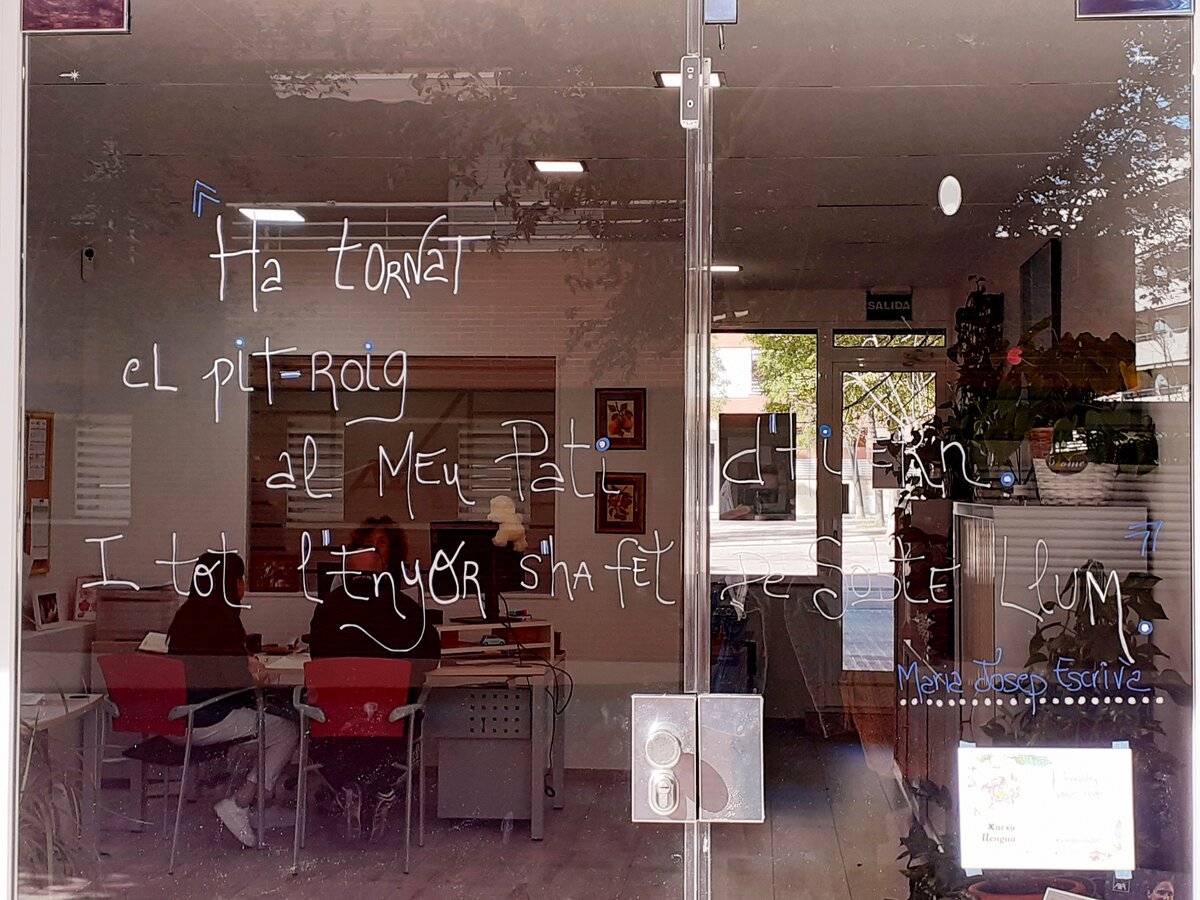 «Ha tornat
el pit-roig
al meu pati d'hivern.
I tot l'enyor s'ha fet de sobte llum.»
Maria Josep Escrivà
SALIDA
Home
Xarxa
llengua
AXA